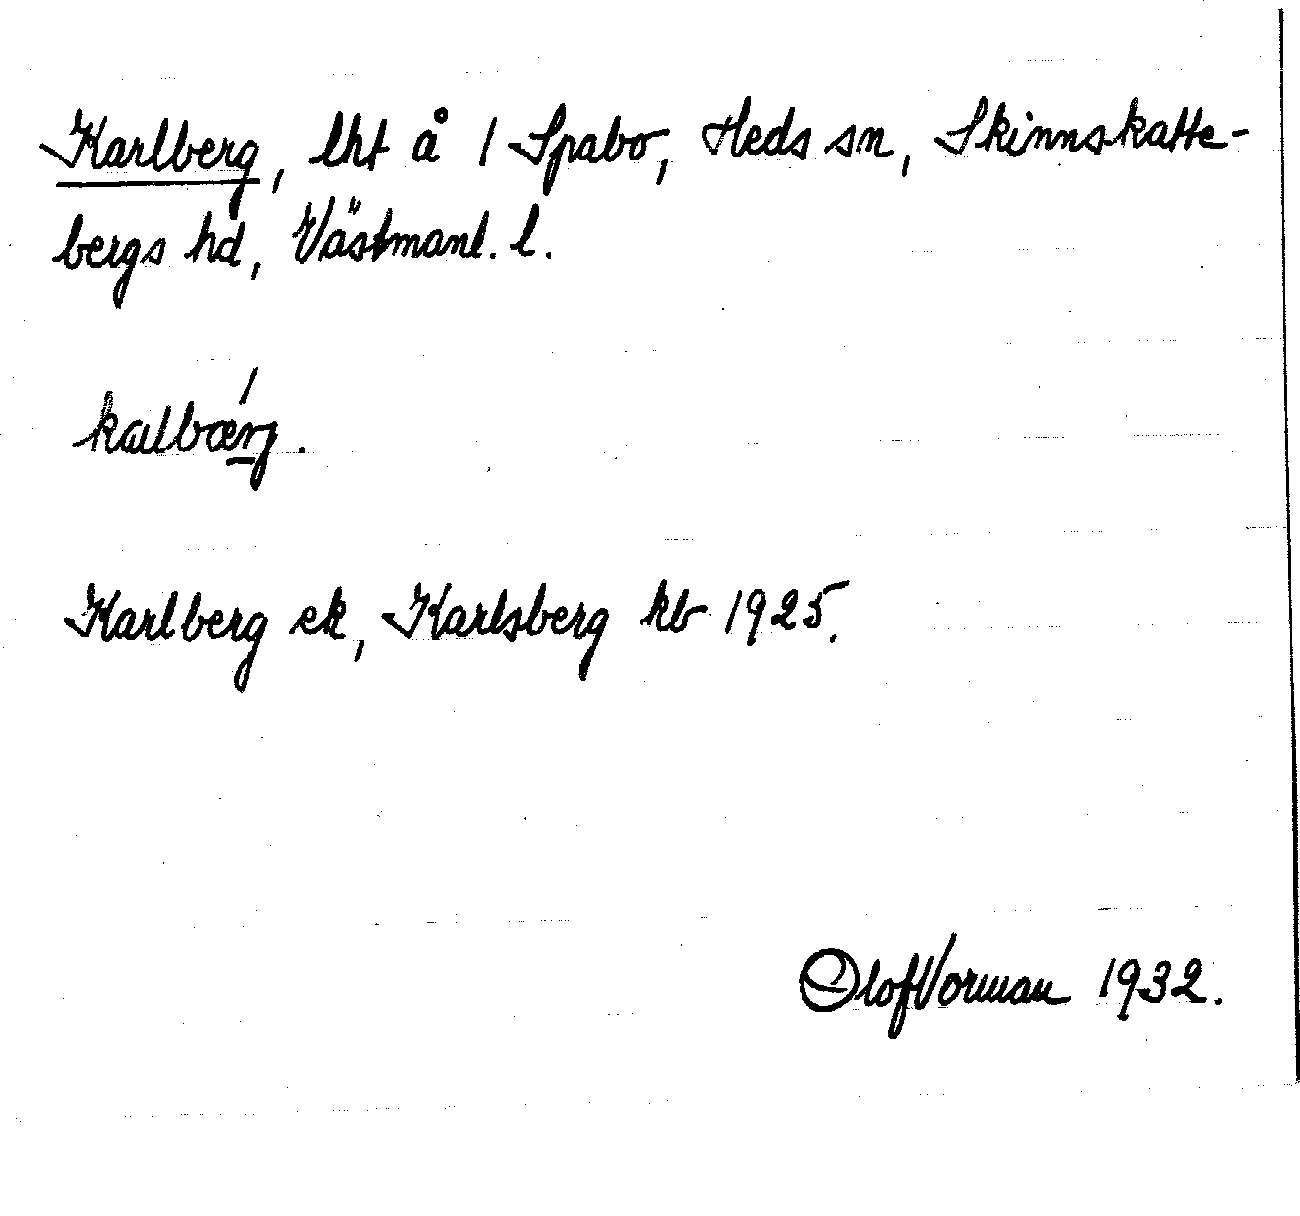 Karlberg, lht å 1 Spabo, Heds sn, Skinnskatte-
bergs hd, Västmanl. l.
Karlberg ek, Karlsberg kb 1925.
Olof Vorman 1932.